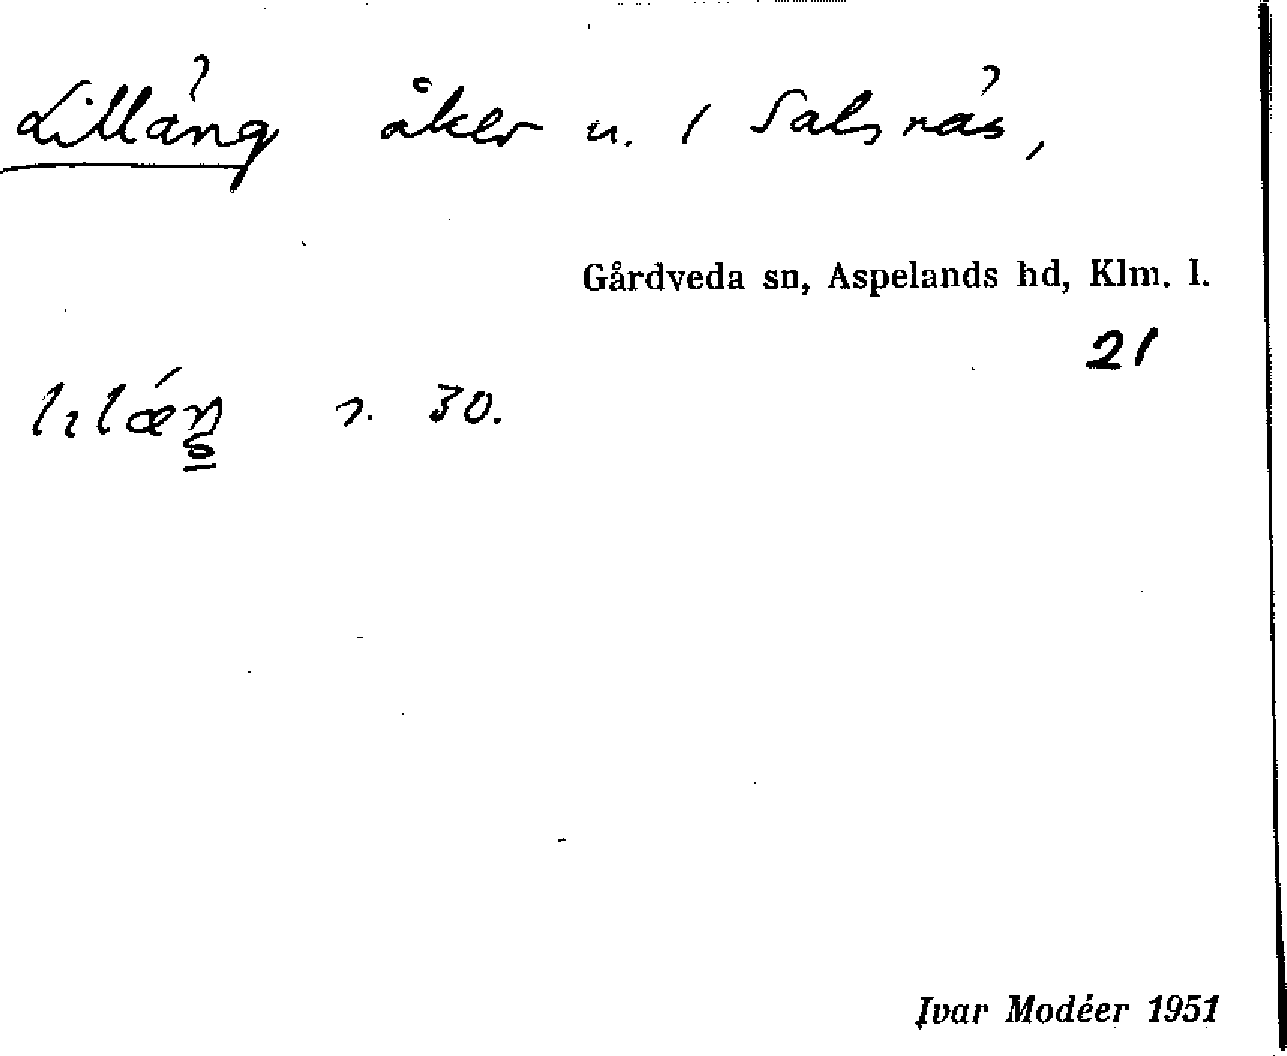 Lilläng åker u. 1 Salsnäs,
Gårdveda sn, Aspelands hd, Klm. l.
21
s. 30.
Ivar Modéer 1951